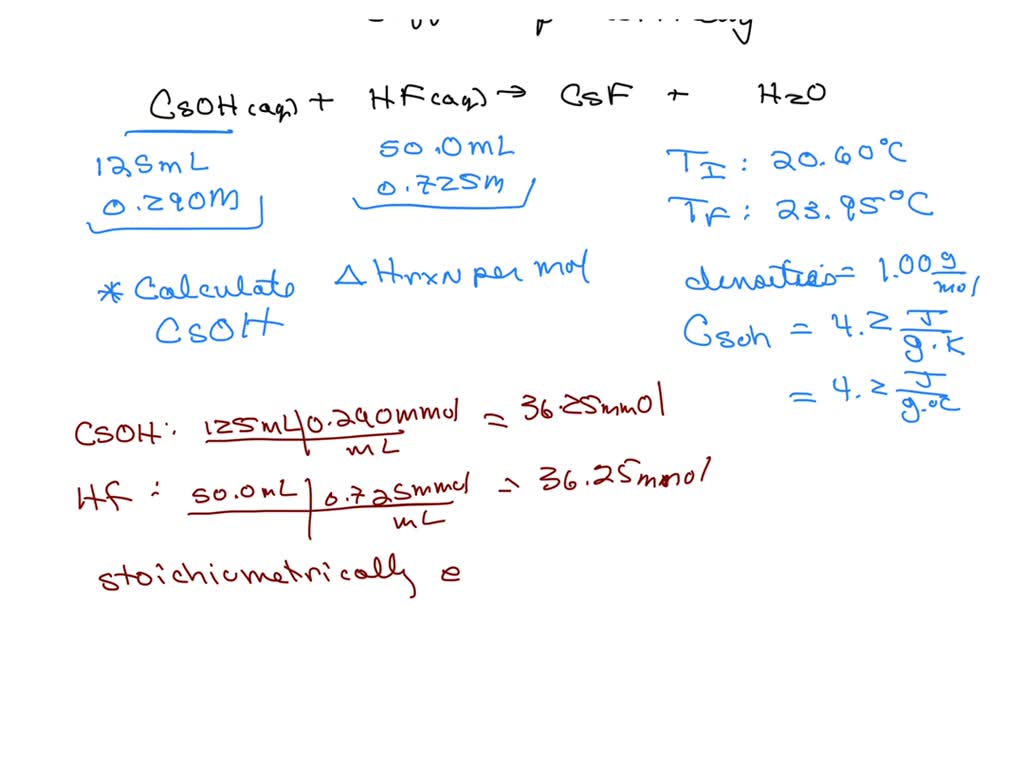 CsOH(aq) + HF(aq) → CsF + H2O
125mL
0.290M
50.0mL
0.725m
TI : 20.60°C
TF : 23.95°C
* Calculate ΔHrxN per mol
CSOH
densities = 1.00 g/mol
Csoln = 4.2 J/g·K
= 4.2 J/g·°C
CSOH: 125mL | 0.290mmol/mL = 36.25mmol
HF : 50.0mL | 0.725mmol/mL = 36.25mmol
stoichiometrically e